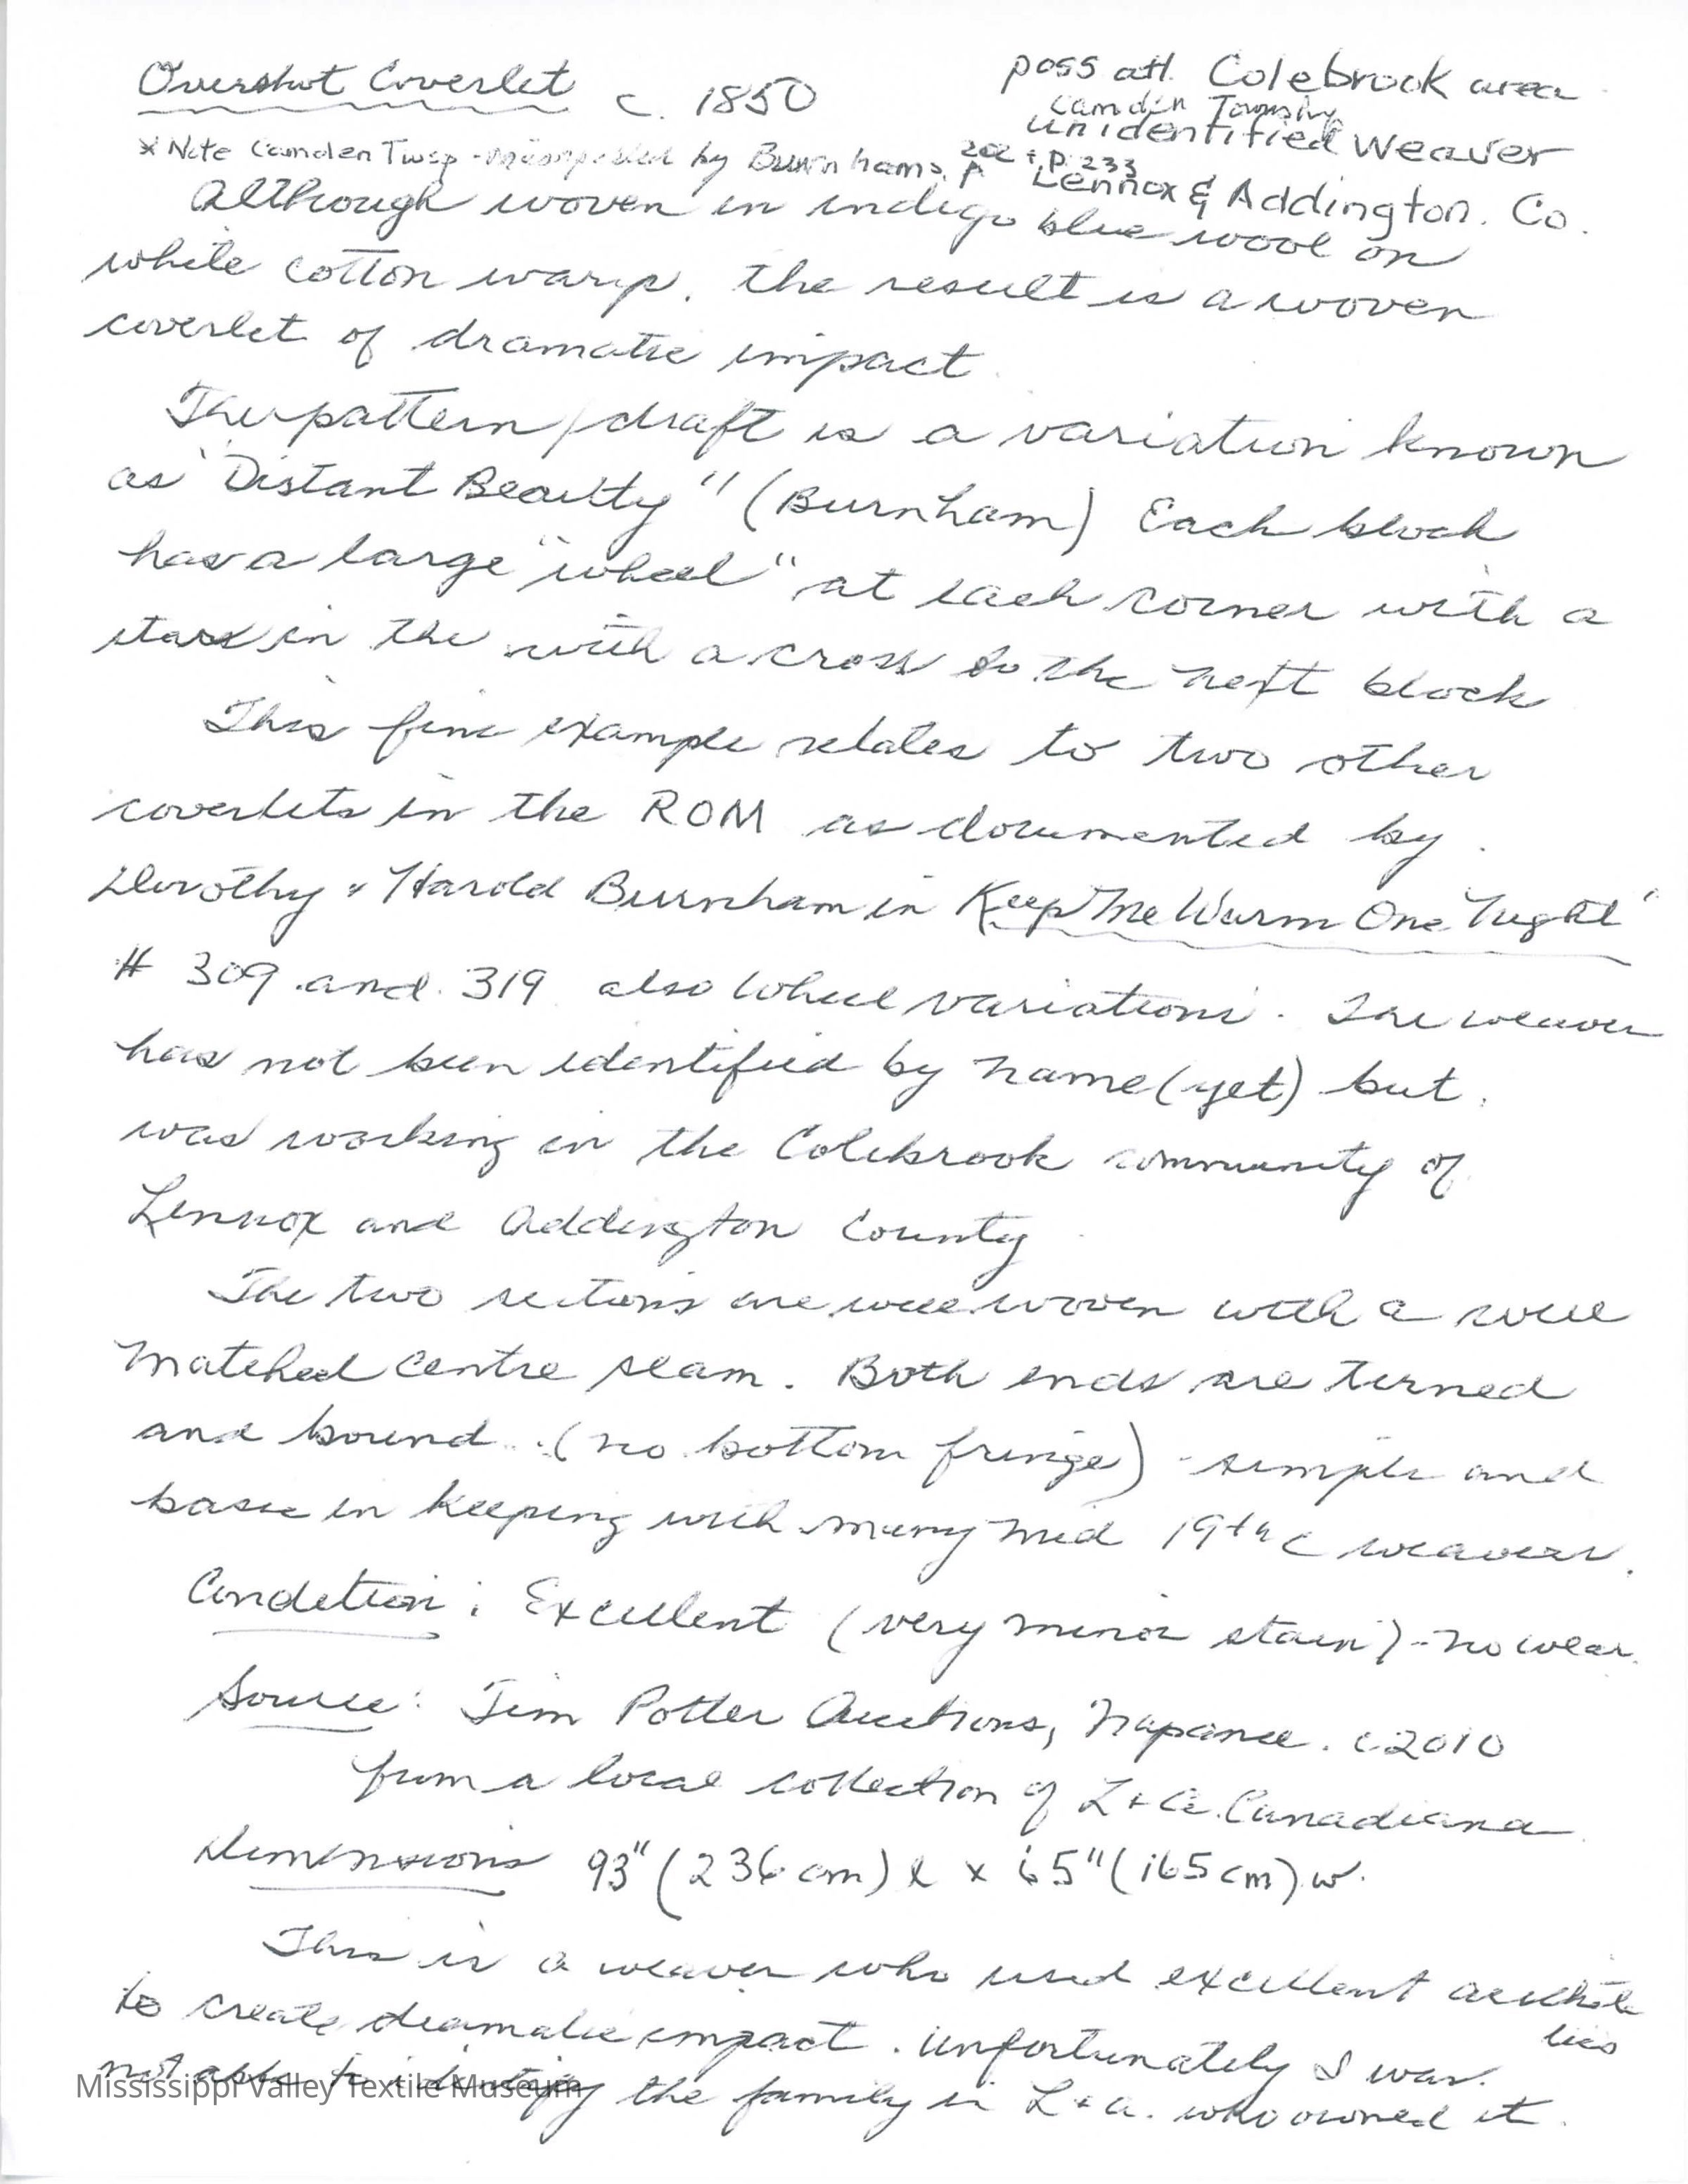 Overshot Coverlet c. 1850
poss att. Colebrook area
Camden Township
unidentified weaver
* Note Camden Twsp by Burnhams, p 202 + p. 233
Lennox & Addington. Co.
Although woven in indigo blue wool on
white cotton warp, the result is a woven
coverlet of dramatic impact.
The pattern/draft is a variation known
as "Distant Beauty" (Burnham) Each block
has a large "wheel" at each corner with a
star in the with a cross to the next block
This fine example relates to two other
coverlets in the ROM as documented by
Dorothy & Harold Burnham in Keep Me Warm One Night"
# 309 and 319 also wheel variations. The weaver
has not been identified by name (yet) but
was working in the Colebrook community of
Lennox and Addington County
The two sections are well woven with a well
matched centre seam. Both ends are turned
and bound (no bottom fringe) - simple and
basic in keeping with many mid 19th c weavers.
Condition: Excellent (very minor stain) - no wear.
Source: Jim Potter Auctions, Napanee. c2010
from a local collection of L+A. Canadiana
Dimensions 93" (236 cm) l x 65" (165 cm) w.
This is a weaver who used excellent
to create dramatic impact. Unfortunately I was
not able to identify the family in L+A. who owned it.
Mississippi Valley Textile Museum